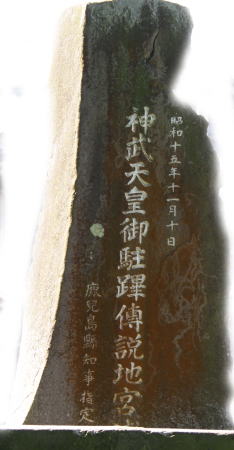 昭和十五年十一月十日
神武天皇御駐蹕傳說地宮
鹿兒島縣知事指定